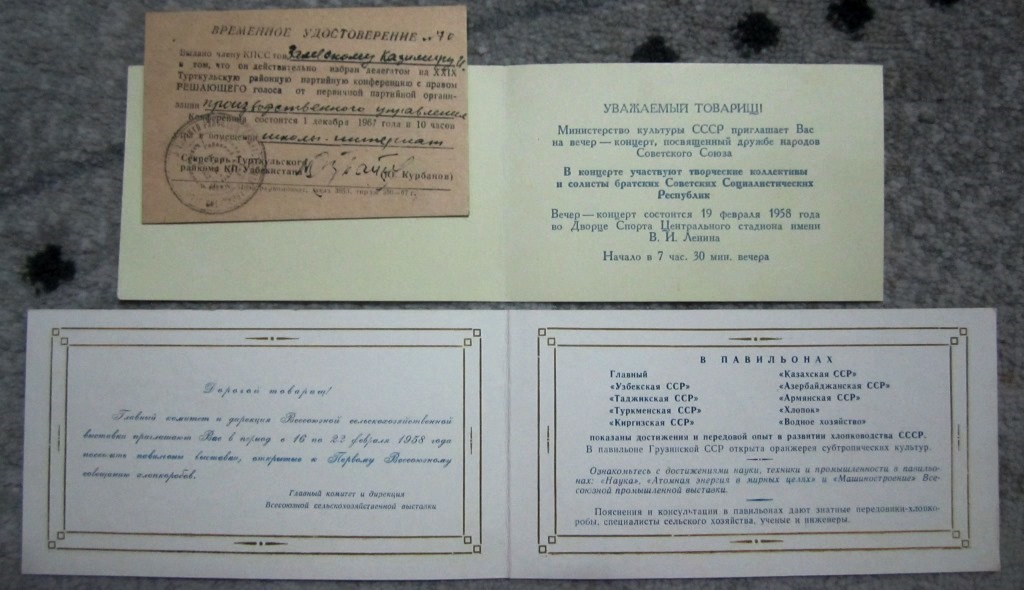 ВРЕМЕННОЕ УДОСТОВЕРЕНИЕ №70
Выдано члену КПСС тов. Залевскому Казимиру И.
в том, что он действительно избран делегатом на XXIX
Турткульскую районную партийную конференцию с правом
РЕШАЮЩЕГО голоса от первичной партийной органи-
зации производственного управления
Конференция состоится 1 декабря 1967 года в 10 часов
в помещении школы-интернат
Секретарь Турткульского
райкома КП Узбекистана (Ю. Курбанов)
УВАЖАЕМЫЙ ТОВАРИЩ!
Министерство культуры СССР приглашает Вас
на вечер — концерт, посвященный дружбе народов
Советского Союза
В концерте участвуют творческие коллективы
и солисты братских Советских Социалистических
Республик
Вечер — концерт состоится 19 февраля 1958 года
во Дворце Спорта Центрального стадиона имени
В. И. Ленина
Начало в 7 час. 30 мин. вечера
Дорогой товарищ!
Главный комитет и дирекция Всесоюзной сельскохозяйственной
выставки приглашают Вас в период с 16 по 22 февраля 1958 года
посетить павильоны выставки, открытые к Первому Всесоюзному
совещанию хлопкоробов.
Главный комитет и дирекция
Всесоюзной сельскохозяйственной выставки
В ПАВИЛЬОНАХ
Главный
«Узбекская ССР»
«Таджикская ССР»
«Туркменская ССР»
«Киргизская ССР»
«Казахская ССР»
«Азербайджанская ССР»
«Армянская ССР»
«Хлопок»
«Водное хозяйство»
показаны достижения и передовой опыт в развитии хлопководства СССР.
В павильоне Грузинской ССР открыта оранжерея субтропических культур.
Ознакомьтесь с достижениями науки, техники и промышленности в павильо-
нах: «Наука», «Атомная энергия в мирных целях» и «Машиностроение» Все-
союзной промышленной выставки.
Пояснения и консультации в павильонах дают знатные передовики-хлопко-
робы, специалисты сельского хозяйства, ученые и инженеры.